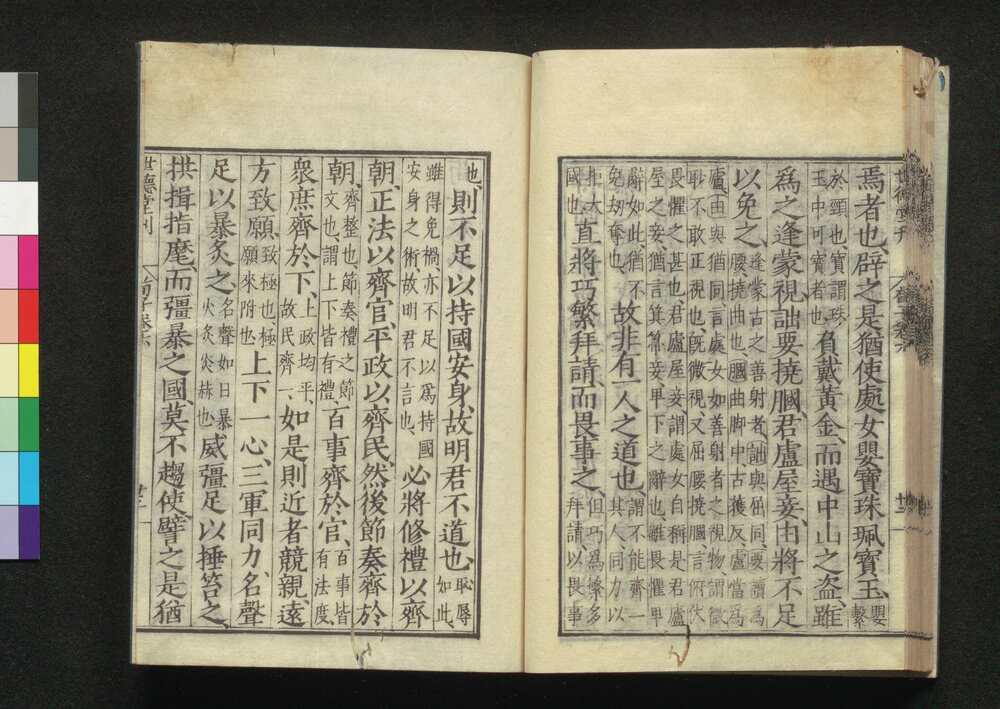 焉者也、辟之是猶使處女嬰寶珠珮寶玉、嬰繫
於頸也、寶謂珠玉中可寶者也、負戴黃金、而遇中山之盜、雖
爲之逢蒙視、詘要撓膕、君盧屋妾、由將不足
以免之、逢蒙古之善射者、詘與屈同、要讀爲腰、撓曲也、膕曲脚中、古獲反、盧當爲
廬、由與猶同、言處女如善射者之視物、謂微眇不敢正視也、既微視、又屈腰撓膕、言俯伏
畏懼之甚也、君廬屋妾、謂處女自稱是君廬屋之妾、猶言箕箒妾、卑下之辭也、雖畏懼卑
辭如此、猶不免劫奪也、故非有一人之道也、謂不能齊一其人、同力以
拒大國也、直將巧繁拜請、而畏事之、但巧爲繁多拜請、以畏事
也、則不足以持國安身、故明君不道也、恥辱如此、
雖得免禍、亦不足以爲持國安身之術、故明君不言也、必將修禮以齊
朝、正法以齊官、平政以齊民、然後節奏齊於
朝、齊整也、節奏禮之節文也、謂上下皆有禮、百事齊於官、百事皆有法度、
衆庶齊於下、上政均平、故民齊一、如是則近者競親、遠
方致願、致極也、極願來附也、上下一心、三軍同力、名聲
足以暴炙之、名聲如日暴火炙炎赫也、威彊足以捶笞之、
拱揖指麾、而彊暴之國、莫不趨使、譬之是猶
世德堂刊
荀子卷六